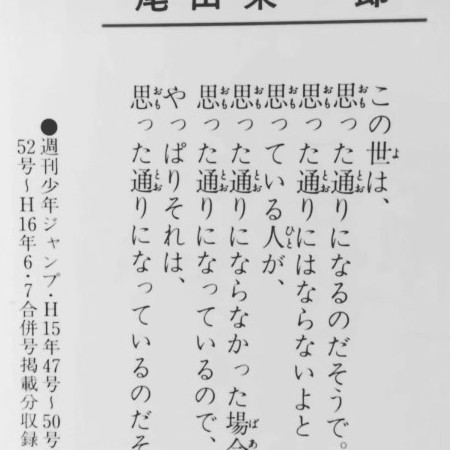 尾田栄一郎
この世は、
思った通りになるのだそうで。
思った通りにはならないよと
思っている人が、
思った通りにならなかった場合
思った通りになっているので、
やっぱりそれは、
思った通りになっているのだそ
●週刊少年ジャンプ・H15年47号〜50号
52号〜H16年6・7合併号掲載分収録